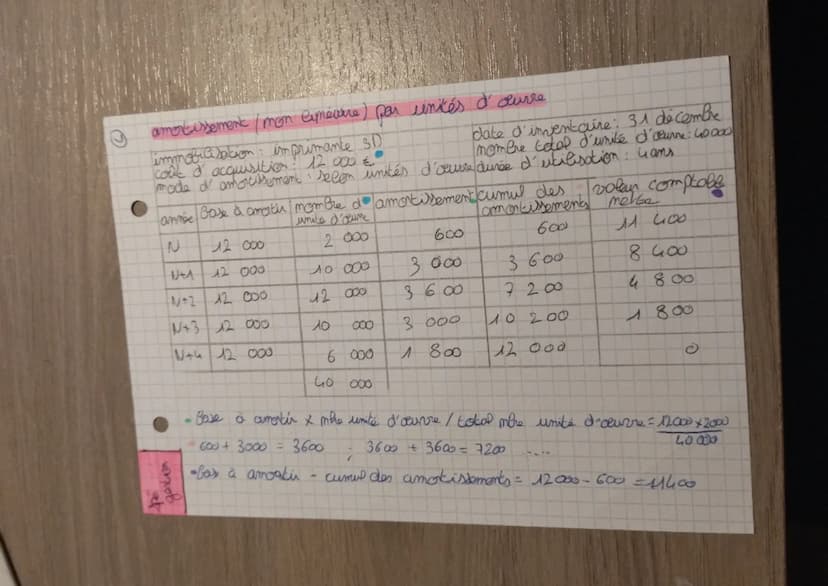 amortissement (non linéaire) par unités d'œuvre
immobilisation : imprimante 3D
coût d'acquisition : 12 000 €
mode d'amortissement : selon unités d'œuvre
date d'inventaire : 31 décembre
nombre total d'unité d'œuvre : 40 000
durée d'utilisation : 4 ans
année Base à amortir nombre d' unité d'œuvre amortissement cumul des amortissements valeur comptable nette
N 12 000 2 000 600 600 11 400
N+1 12 000 10 000 3 000 3 600 8 400
N+2 12 000 12 000 3 600 7 200 4 800
N+3 12 000 10 000 3 000 10 200 1 800
N+4 12 000 6 000 1 800 12 000 0
40 000
Base à amortir x nbre unité d'œuvre / total nbre unité d'œuvre = 12000 x 2000 / 40 000
600 + 3000 = 3600 ; 3600 + 3600 = 7200 ....
Bas à amortir - cumul des amortissements = 12 000 - 600 = 11400
gestion